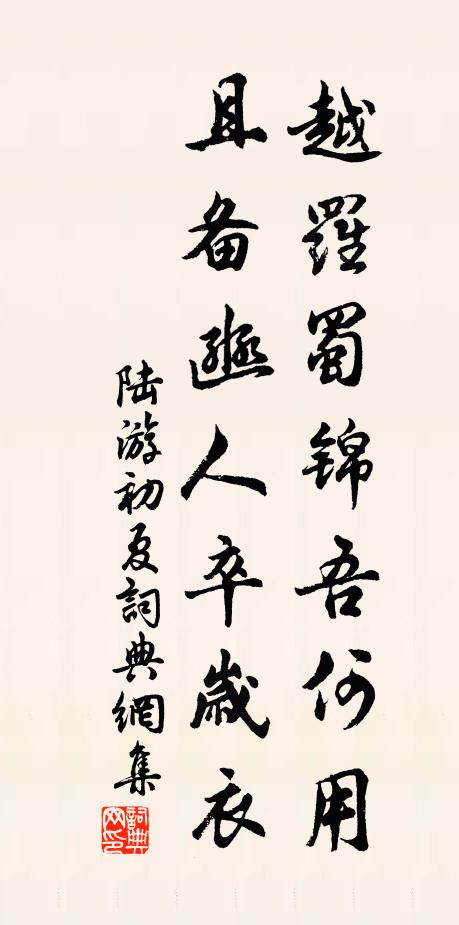 越羅蜀锦吾何用
且备豳人卒歲衣
陆游初夏詞典網集
詞典网印